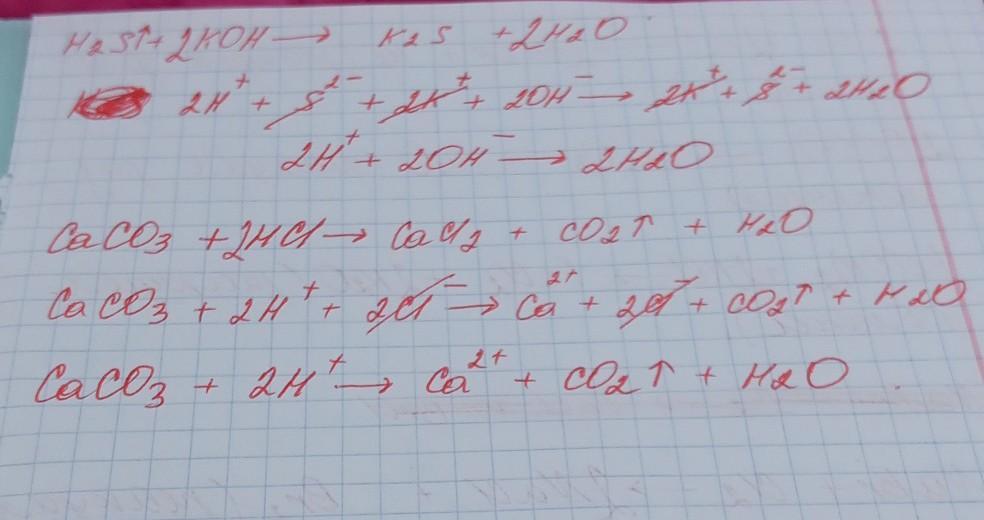 H2S↑ + 2KOH → K2S + 2H2O
2H⁺ + S²⁻ + 2K⁺ + 2OH⁻ → 2K⁺ + S²⁻ + 2H2O
2H⁺ + 2OH⁻ → 2H2O
CaCO3 + 2HCl → CaCl2 + CO2↑ + H2O
CaCO3 + 2H⁺ + 2Cl⁻ → Ca²⁺ + 2Cl⁻ + CO2↑ + H2O
CaCO3 + 2H⁺ → Ca²⁺ + CO2↑ + H2O.